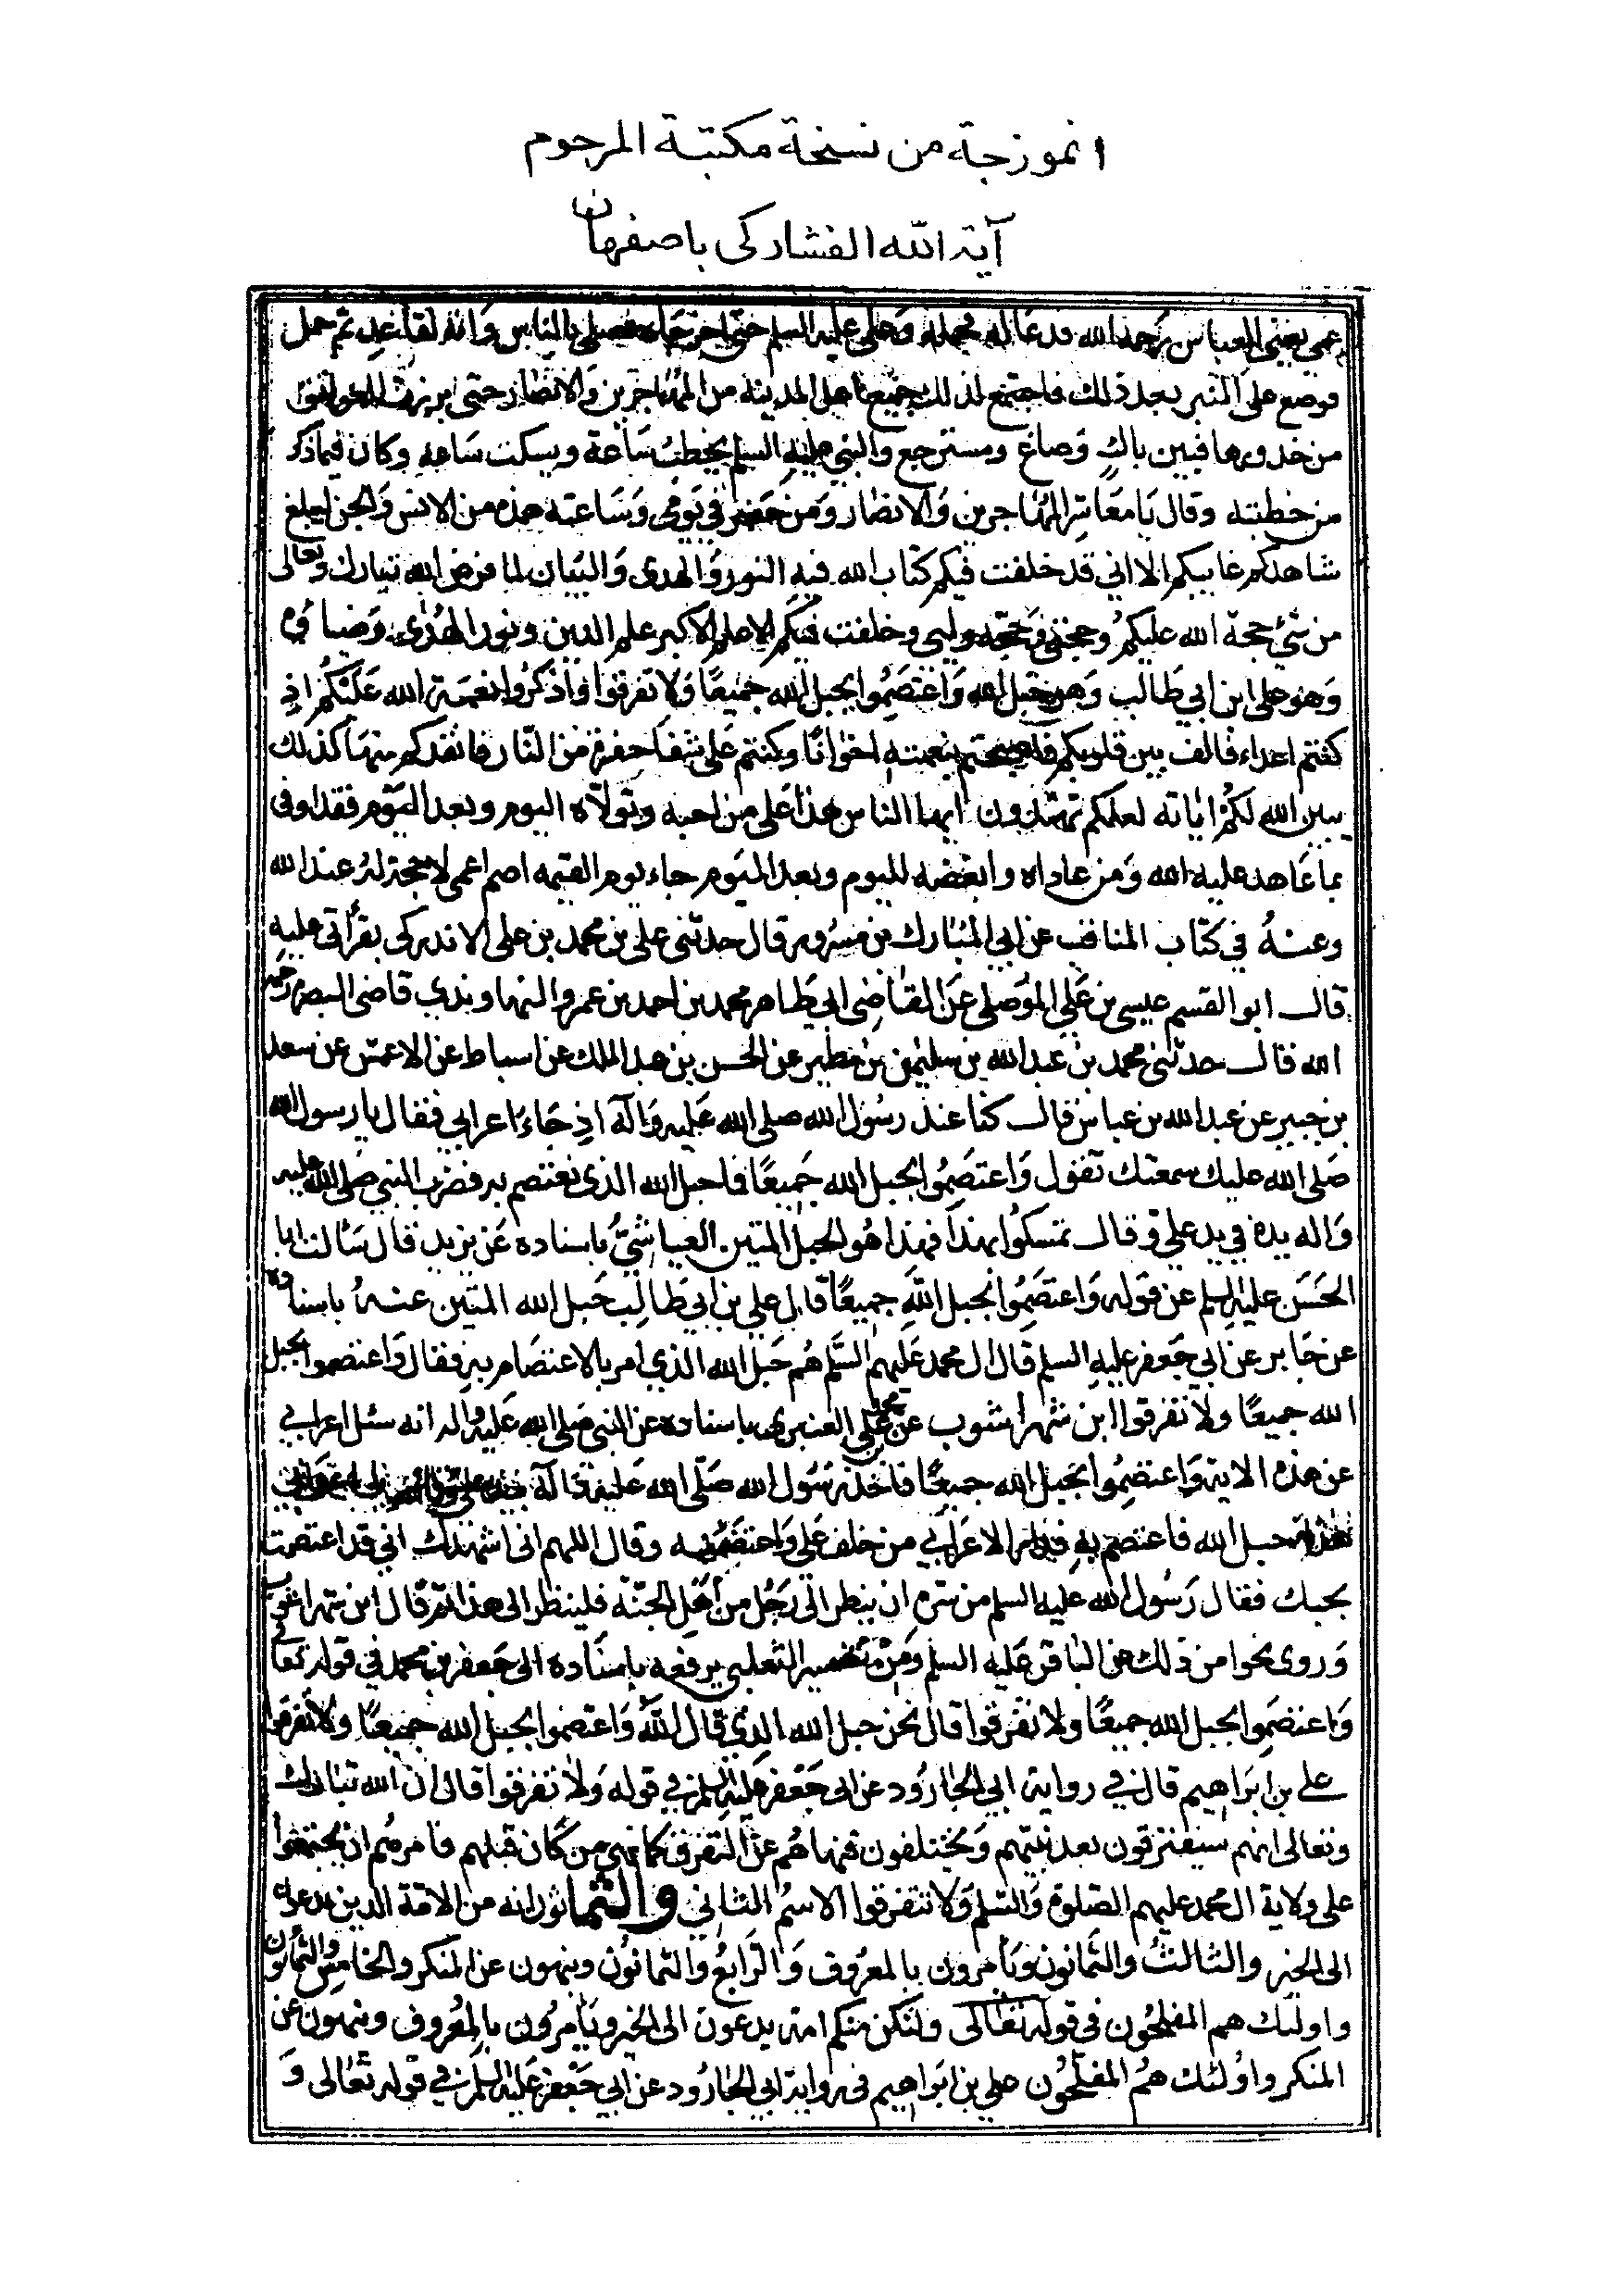 انموزجة من نسخة مكتبة المرحوم
آية الله الفشاركى باصفهان
عمى يعنى العباس رحمه الله فدعا له فحمله وعلى عليه السلم حتى اخرجاه فصلى بالناس وانه لقاعد ثم حمل
فوضع على المنبر بعد ذلك فاجتمع لذلك جميع اهل المدينة من المهاجرين والانصار حتى برزت العواتق
من خدورها فبين باك وصايح ومسترجع والنبى عليه السلم يخطب ساعة ويسكت ساعة وكان فيما ذكر
من خطبته وقال يا معاشر المهاجرين والانصار ومن حضر في يومى وساعته هذه من الانس والجن ليبلغ
شاهدكم غايبكم الا اني قد خلفت فيكم كتاب الله فيه النور والهدى والبيان لما فرض الله تبارك وتعالى
من شئ حجة الله عليكم وحجتي وحجة وليى وخلفت فيكم العلم الاكبر علم الدين ونور الهدى وضياؤه
وهو على ابن ابي طالب وهو حبل الله وَاعتصموا بحبل الله جميعًا ولا تفرقوا واذكروا نعمة الله عليكم اذ
كنتم اعداء فالف بين قلوبكم فاصبحتم بنعمته اخوانًا وكنتم على شفا حفرة من النار فانقذكم منها كذلك
يبين الله لكم اياته لعلكم تهتدون ايها الناس هذا على من احبه وتولاه اليوم وبعد اليوم فقد اوفى
بما عاهد عليه الله ومن عاداه وابغضه لليوم وبعد اليوم جاء يوم القيمه اصم اعمى لا حجة له عند الله
وعنه في كتاب المناقب عن ابي المبارك بن مسرور قال حدثنى على بن محمد بن على الاندركى بقرأتى عليه
قال ابو القسم عيسى بن على الموصلى عن القاضى ابي طاهر محمد بن احمد بن عمرو النهاوندي قاضى البصرة رحمه
الله قال حدثنى محمد بن عبد الله بن سليمن بن مطير عن الحسن بن عبد الملك عن اسباط عن الاعمش عن سعد
بن جبير عن عبد الله بن عباس قال كنا عند رسول الله صلى الله عليه وآله اذ جاء اعرابي فقال يا رسول الله
صلى الله عليك سمعتك تقول واعتصموا بحبل الله جميعًا فما حبل الله الذى نعتصم به فضرب النبي صلى الله عليه
واله يده في يد علي وقال تمسكوا بهذا فهذا هو الحبل المتين العياشيُّ باسناده عن يزيد قال سألت ابا
الحسن عليه السلم عن قوله واعتصموا بحبل الله جميعًا قال علي بن ابي طالب حبل الله المتين عنه باسناده
عن جابر عن ابي جعفر عليه السلم قال ال محمد عليهم السلم هم حبل الله الذي امر بالاعتصام به فقال واعتصموا بحبل
الله جميعًا ولا تفرقوا ابن شهراشوب عن محمد بن على العنبرى باسناده عن النبى صلى الله عليه واله انه سئل اعرابي
عن هذه الاية واعتصموا بحبل الله جميعًا فاخذ رسول الله صلى الله عليه وآله يد على
هذا حبل الله فاعتصم به فدار الاعرابي من خلف على واحتضنه وقال اللهم انى اشهدك اني قد اعتصمت
بحبلك فقال رسول الله عليه السلم من سره ان ينظر الى رجل من اهل الجنة فلينظر الى هذا ثم قال ابن شهراشوب
وروى نحوا من ذلك عن الباقر عليه السلم ومن تفسير الثعلبى يرفعه باسناده الى جعفر بن محمد في قوله تعالى
واعتصموا بحبل الله جميعًا ولا تفرقوا قال نحن حبل الله الذي قال الله واعتصموا بحبل الله جميعًا ولا تفرقوا
علي بن ابراهيم قال في رواية ابي الجارود عن ابى جعفر عليه السلم في قوله ولا تفرقوا قال ان الله تبارك
وتعالى انهم سيفترقون بعد نبيهم ويختلفون فنهاهم عن التفرق كما نهى من كان قبلهم فامرهم ان يجتمعوا
على ولاية ال محمد عليهم الصلوة والسلم ولا تتفرقوا الاسم الثاني والثمانون انه من الامة الذين يدعون
الى الخير والثالث والثمانون ويأمرون بالمعروف والرابع والثمانون وينهون عن المنكر والخامس والثمانون
واولئك هم المفلحون في قوله تعالى ولتكن منكم امة يدعون الى الخير ويأمرون بالمعروف وينهون عن
المنكر واولئك هم المفلحون على بن ابراهيم فى رواية ابى الجارود عن ابي جعفر عليه السلم في قوله تعالى و